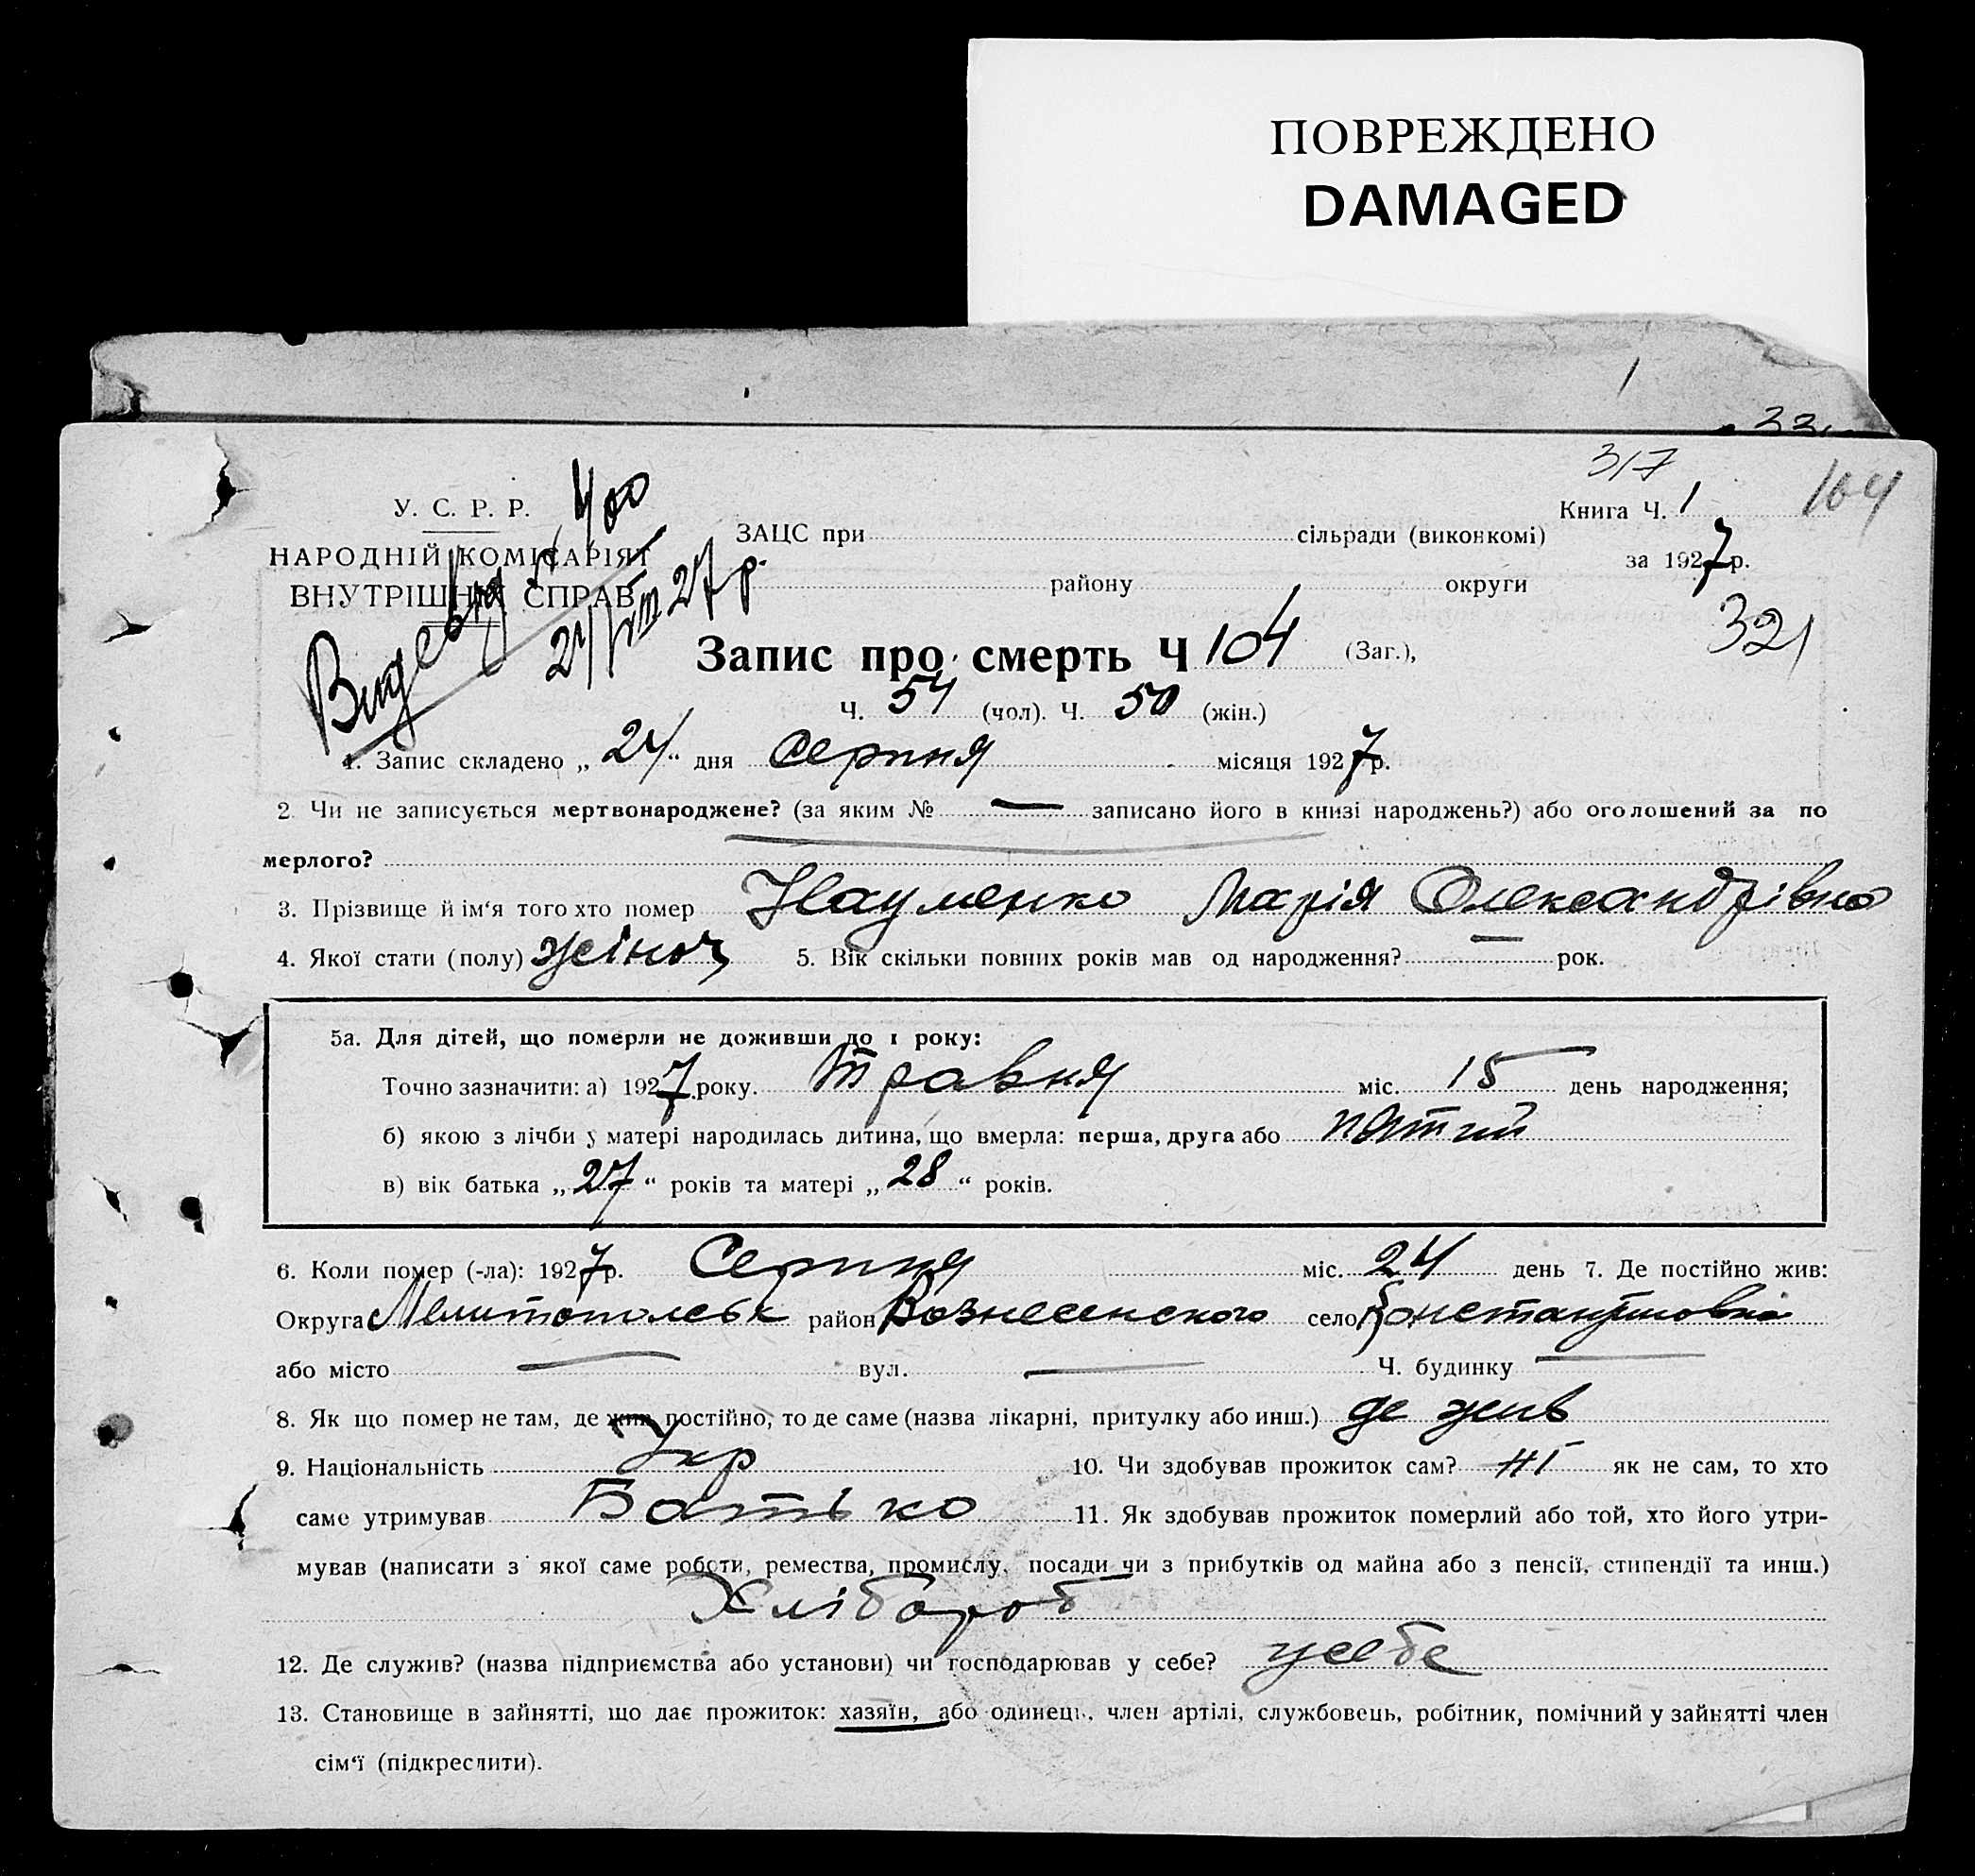 ПОВРЕЖДЕНО
DAMAGED
1
33
317
104
У. С. Р. Р.
НАРОДНІЙ КОМІСАРІЯТ
ВНУТРІШНІХ СПРАВ
400
24/VIII 27 р.
Книга Ч. 1
за 1927 р.
321
ЗАЦС при сільради (виконкомі)
району округи
Запис про смерть Ч 104 (Заг.),
Ч. 54 (чол). Ч. 50 (жін.)
1. Запис складено „ 24 “ дня Серпня місяця 1927 р.
2. Чи не записується мертвонароджене? (за яким № — записано його в книзі народжень?) або оголошений за по
мерлого?
3. Прізвище й ім‘я того хто помер Науменко Марія Олександрівна
4. Якої стати (полу) жіноч 5. Вік скільки повних років мав од народження? — рок.
5а. Для дітей, що померли не доживши до 1 року:
Точно зазначити: а) 1927 року. Травня міс. 15 день народження;
б) якою з лічби у матері народилась дитина, що вмерла: перша, друга або пятий
в) вік батька „ 27 “ років та матері „ 28 “ років.
6. Коли помер (-ла): 1927 р. Серпня міс. 24 день 7. Де постійно жив:
Округа Мелитопольск район Вознесенского село Константиновка
або місто — вул. — Ч. будинку —
8. Як що помер не там, де жив постійно, то де саме (назва лікарні, притулку або инш.) де жив
9. Національність Укр 10. Чи здобував прожиток сам? Ні як не сам, то хто
саме утримував Батько 11. Як здобував прожиток померлий або той, хто його утри-
мував (написати з якої саме роботи, ремества, промислу, посади чи з прибутків од майна або з пенсії, стипендії та инш.)
Хлібороб
12. Де служив? (назва підприємства або установи) чи господарював у себе? усебе
13. Становище в зайнятті, що дає прожиток: хазяїн, або одинець, член артілі, службовець, робітник, помічний у зайнятті член
сім‘ї (підкреслити).